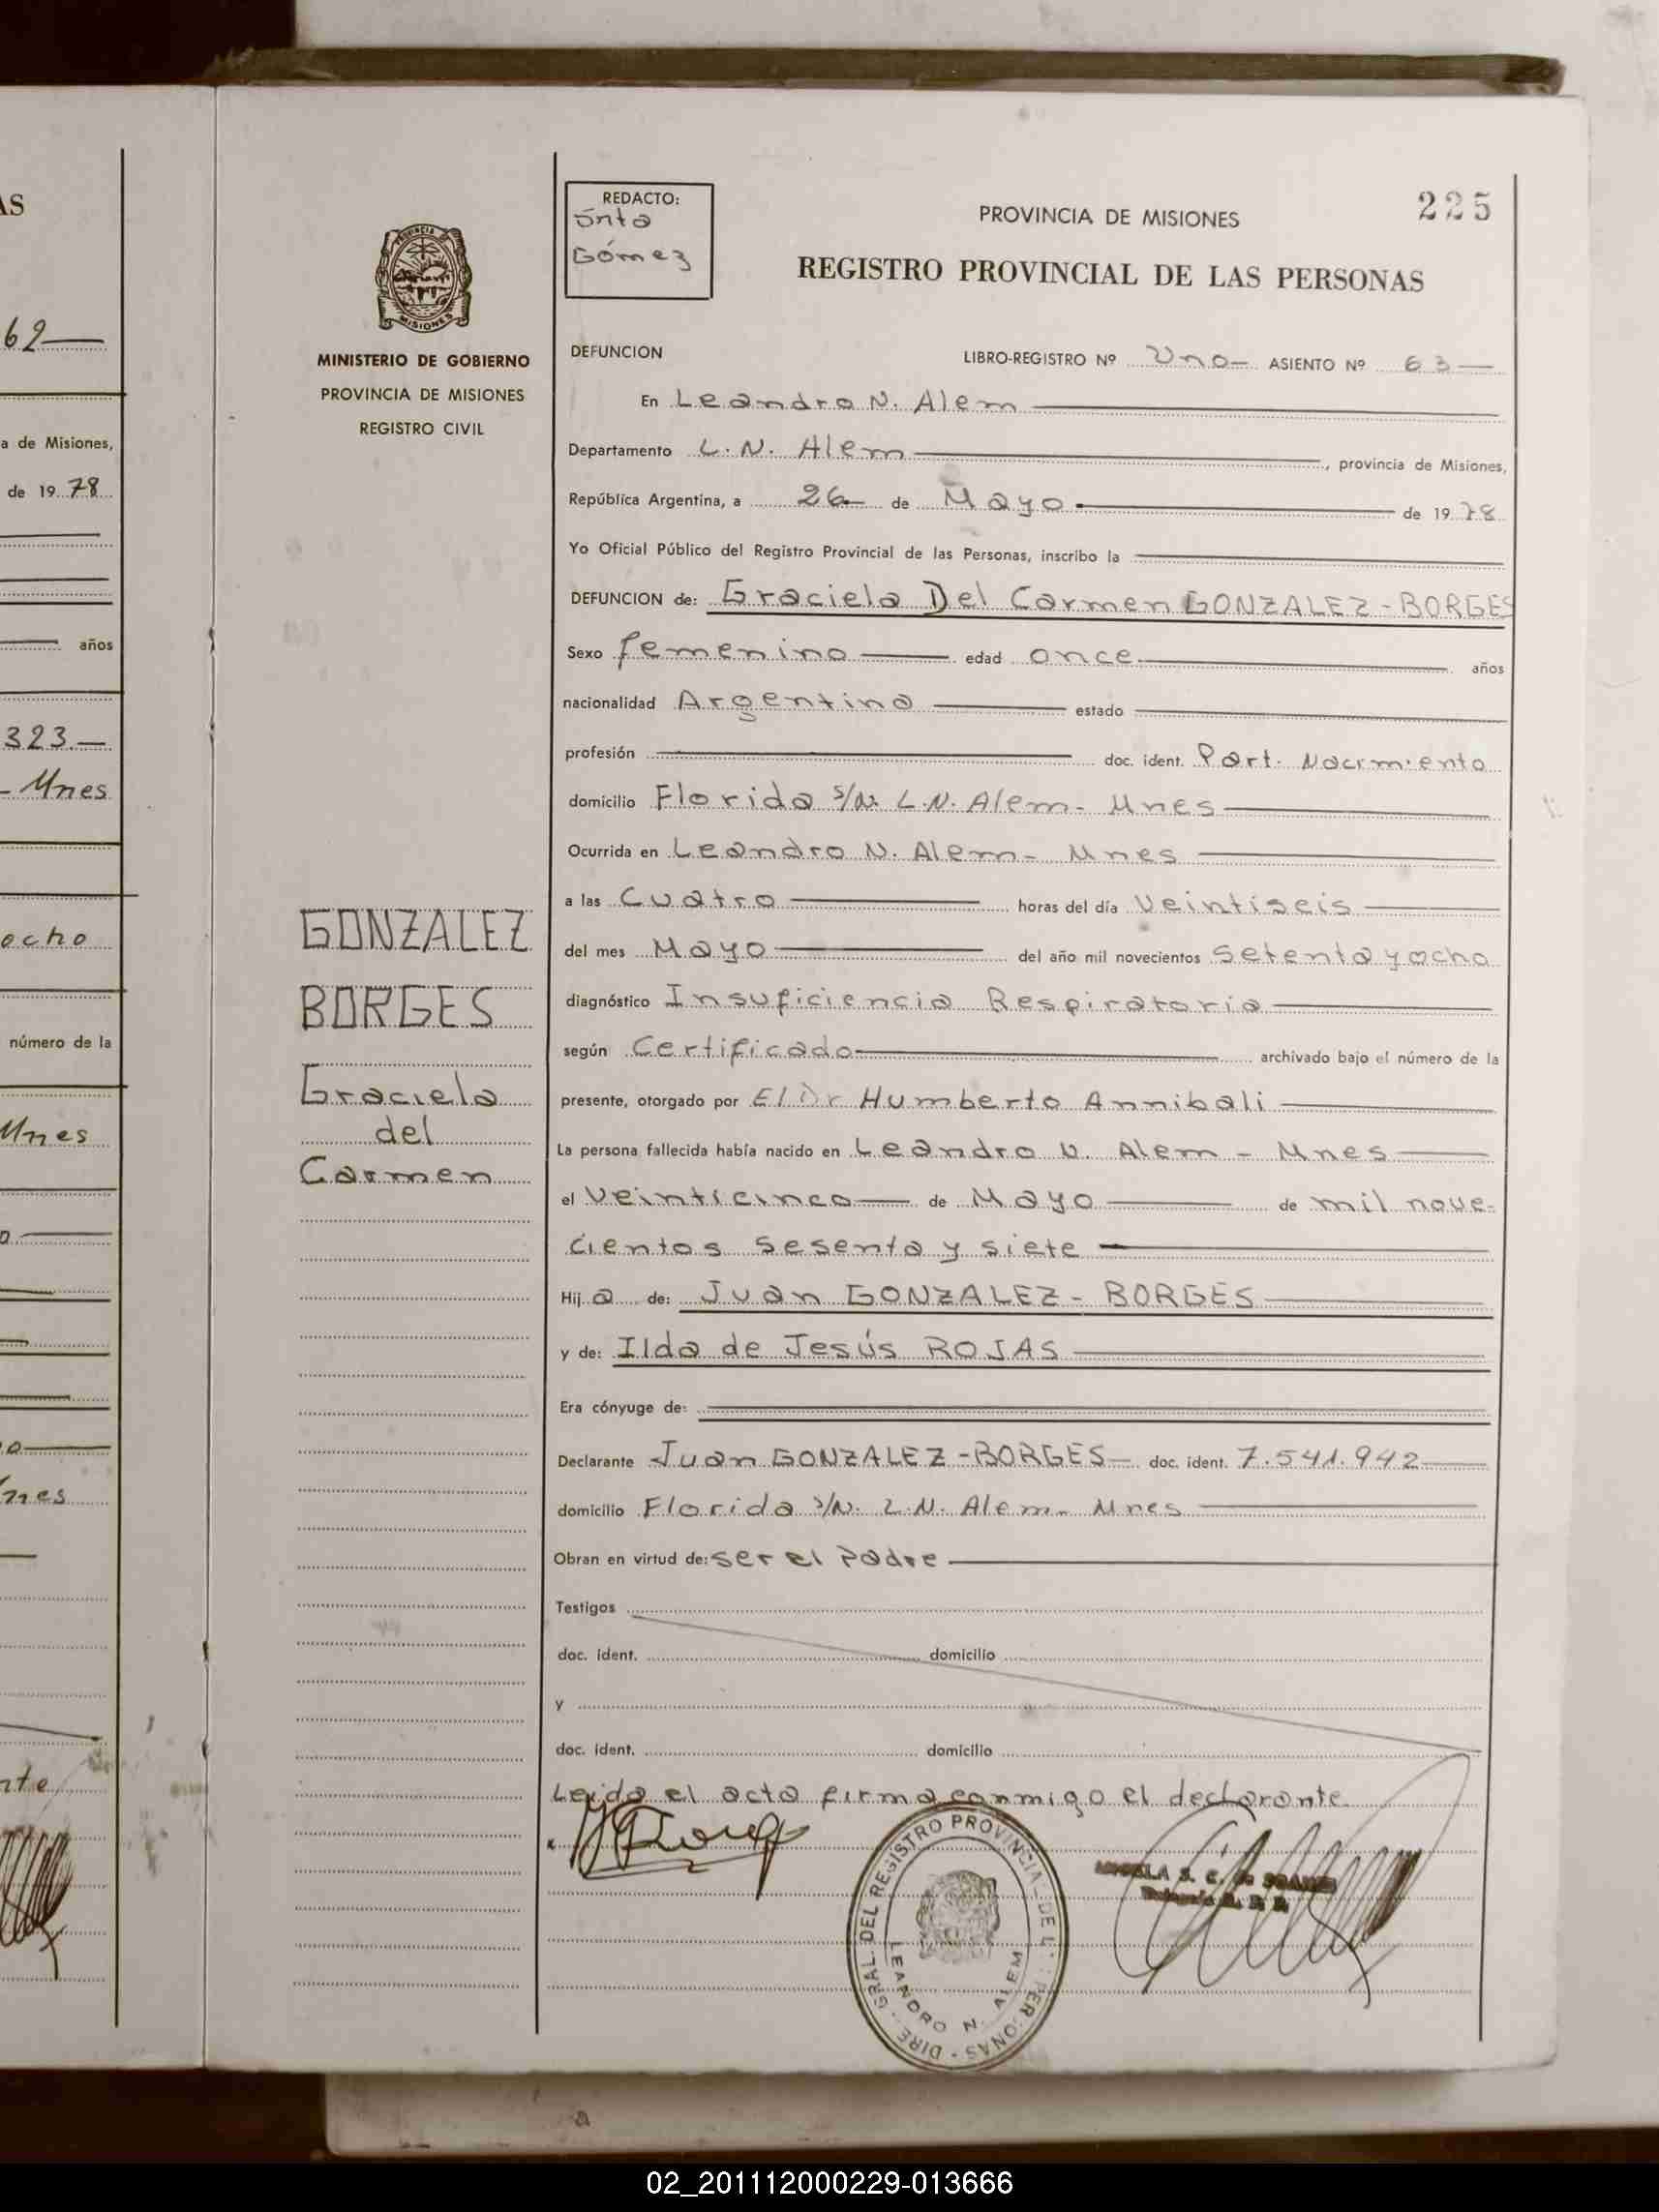 AS
62
a de Misiones,
de 19 78
años
323.-
- Mnes
ocho
número de la
Mnes
nte
PROVINCIA DE
MISIONES
MINISTERIO DE GOBIERNO
PROVINCIA DE MISIONES
REGISTRO CIVIL
GONZALEZ
BORGES
Graciela
del
Carmen
REDACTO:
Srita
Gómez
PROVINCIA DE MISIONES
225
REGISTRO PROVINCIAL DE LAS PERSONAS
DEFUNCION LIBRO-REGISTRO Nº Uno- ASIENTO Nº 63
En Leandro N. Alem
Departamento L. N. Alem, provincia de Misiones,
República Argentina, a 26 de Mayo de 19 78
Yo Oficial Público del Registro Provincial de las Personas, inscribo la
DEFUNCION de: Graciela Del Carmen GONZALEZ-BORGES
Sexo femenino edad once años
nacionalidad Argentina estado
profesión doc. ident. Part. Nacimiento
domicilio Florida s/N. L.N. Alem- Mnes
Ocurrida en Leandro N. Alem- Mnes
a las Cuatro horas del día Veintiseis
del mes Mayo del año mil novecientos Setenta y ocho
diagnóstico Insuficiencia Respiratoria
según Certificado archivado bajo el número de la
presente, otorgado por El Dr Humberto Annibali
La persona fallecida había nacido en Leandro N. Alem - Mnes
el Veinticinco de Mayo de mil nove-
cientos sesenta y siete
Hij a de: Juan GONZALEZ- BORGES
y de: Ilda de Jesús ROJAS
Era cónyuge de:
Declarante Juan GONZALEZ-BORGES- doc. ident. 7.541.942
domicilio Florida s/N. L.N. Alem- Mnes
Obran en virtud de: ser el Padre
Testigos
doc. ident. domicilio
y
doc. ident. domicilio
Leida el acta firma conmigo el declarante
DIRE. GRAL. DEL REGISTRO PROVINCIAL DE L. PERSONAS
LEANDRO N. ALEM
02_201112000229-013666